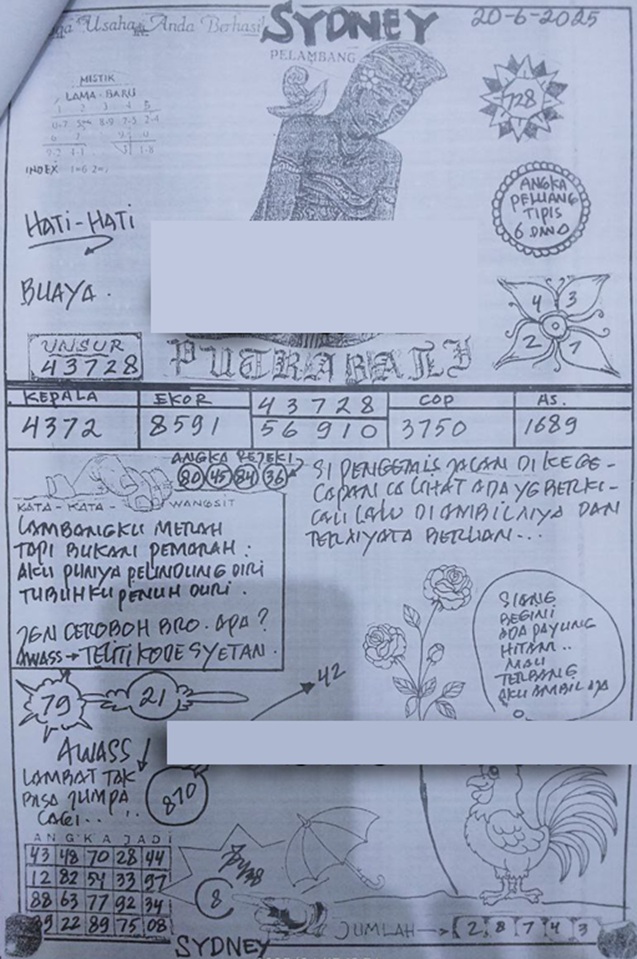 Usaha Anda Berhasil
SYDNEY
20-6-2025
PELAMBANG
MISTIK
LAMA - BARU
INDEX
728
HATI-HATI
ANGKA
PELUANG
TIPIS
6 DAN 0
BUAYA.
4 3
2 7
UNSUR
43728
PUTRA BALI
KEPALA EKOR 43728 COP AS.
4372 8591 56910 3750 1689
ANGKA REJEKI
80 45 84 36
KATA - KATA - WANGSIT
LAMBANGKU MERAH
TAPI BUKAN PEMARAH :
AKU PUNYA PELINDUNG DIRI
TUBUHKU PENUH DURI.
JGN CEROBOH BRO. APA?
AWASS → TELITI KODE SYETAN.
SI PENGEMIS JALAN DI KEGE-
LAPAN LA LIHAT ADA YG BERKI-
LAU LALU DI AMBILNYA DAN
TERNYATA BERLIAN...
SIANG
BEGINI
ADA PAYUNG
HITAM..
MAU
TERBANG
AKU AMBIL AJA
79
21
42
AWASS!
LAMBAT TAK
BISA JUMPA
LAGI.....
870
ANGKA JADI
43 48 70 28 44
12 82 54 33 97
88 63 77 92 34
22 89 75 08
8
JUMLAH → 2 8 7 4 3
SYDNEY